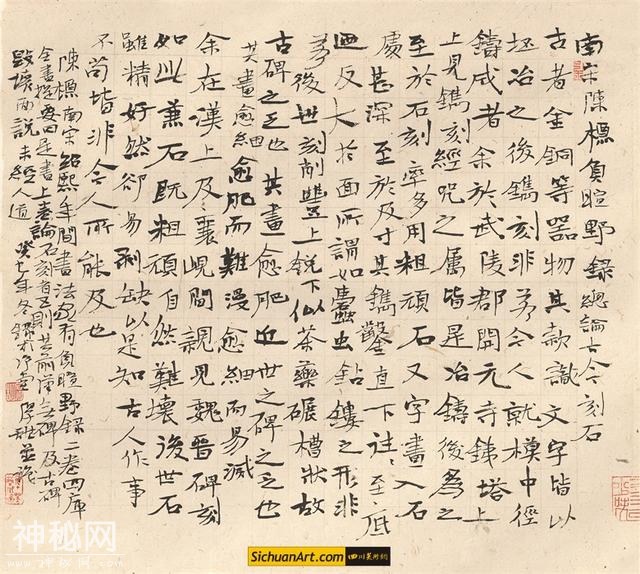 南宋陳槱負暄野錄總論古今刻石
古者金銅等器物其款識文字皆以
坯冶之後鐫刻非若今人就模中徑
鑄成者余於武陵郡開元寺鐵塔上
上見鐫刻經咒之屬皆是冶鑄後為之
至於石刻率多用粗頑石又字畫入石
處甚深至於及寸其鐫鑿直下往往至底
迺反大於面所謂如蠹虫鉆鏤之形非
若後世刻削豐上銳下似茶藥碾槽狀故
古碑之乏也其畫愈肥近世之碑之乏也
其畫愈細愈肥而難漫愈細而易滅
余在漢上及襄峴間親見魏晉碑刻
如此兼石既粗頑自然難壞後世石
雖精好然卻易剝缺以是知古人作事
不苟皆非今人所能及也
陳槱南宋紹熙年間書法家有負暄野錄一卷四庫
全書提要曰是書上卷論石刻者五則其前漢無碑及古碑
毀壞兩說未經人道 癸巳年冬錄於
神秘网
SichuanArt.com 四川美術網